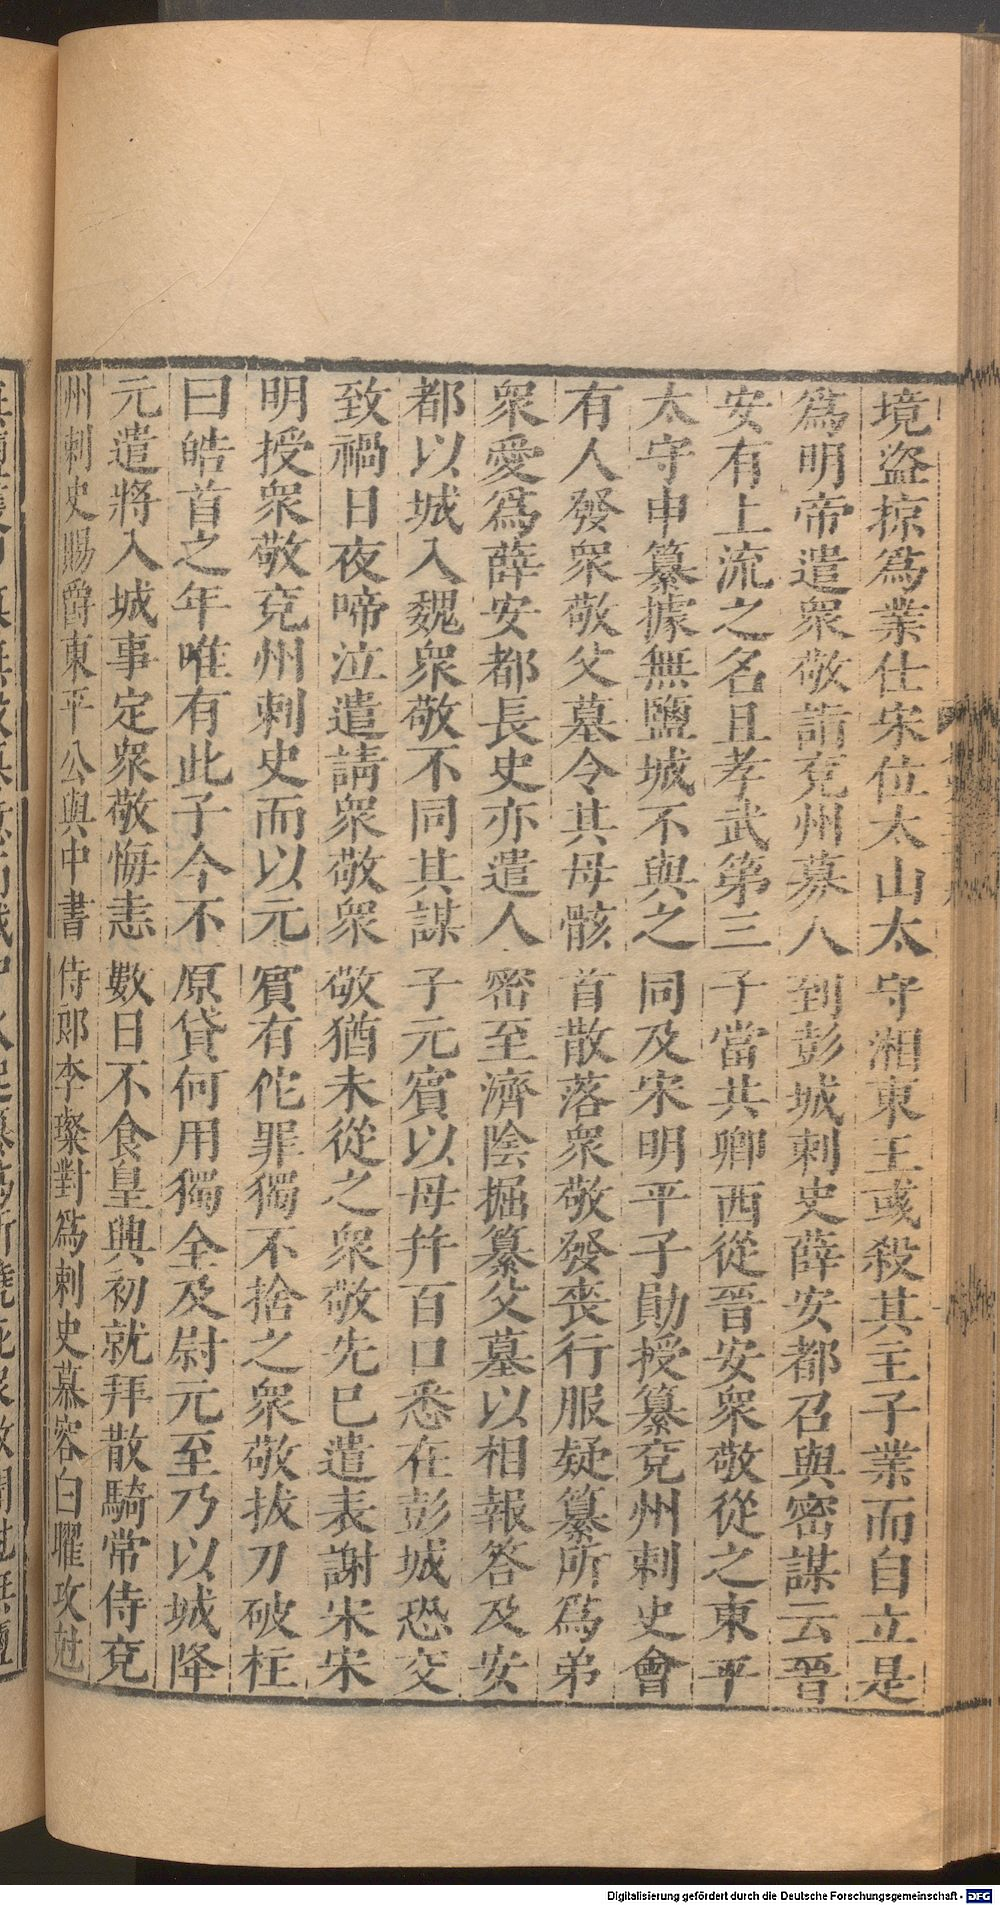 境盜掠爲業仕宋位太山太守湘東王彧殺其主子業而自立是
爲明帝遣衆敬詣兗州募人到彭城刺史薛安都召與密謀云晉
安有上流之名且孝武第三子當共卿西從晉安衆敬從之東平
太守申纂據無鹽城不與之同及宋明平子勛授纂兗州刺史會
有人發衆敬父墓令其母骸首散落衆敬發喪行服疑纂所爲弟
衆愛爲薛安都長史亦遣人密至濟陰掘纂父墓以相報答及安
都以城入魏衆敬不同其謀子元賓以母幷百口悉在彭城恐交
致禍日夜啼泣遣請衆敬衆敬猶未從之衆敬先已遣表謝宋宋
明授衆敬兗州刺史而以元賓有佗罪獨不捨之衆敬拔刀破柱
曰皓首之年唯有此子今不原貸何用獨全及尉元至乃以城降
元遣將入城事定衆敬悔恚數日不食皇興初就拜散騎常侍兗
州刺史賜爵東平公與中書侍郎李璨對爲刺史慕容白曜攻尅
Digitalisierung gefördert durch die Deutsche Forschungsgemeinschaft - DFG